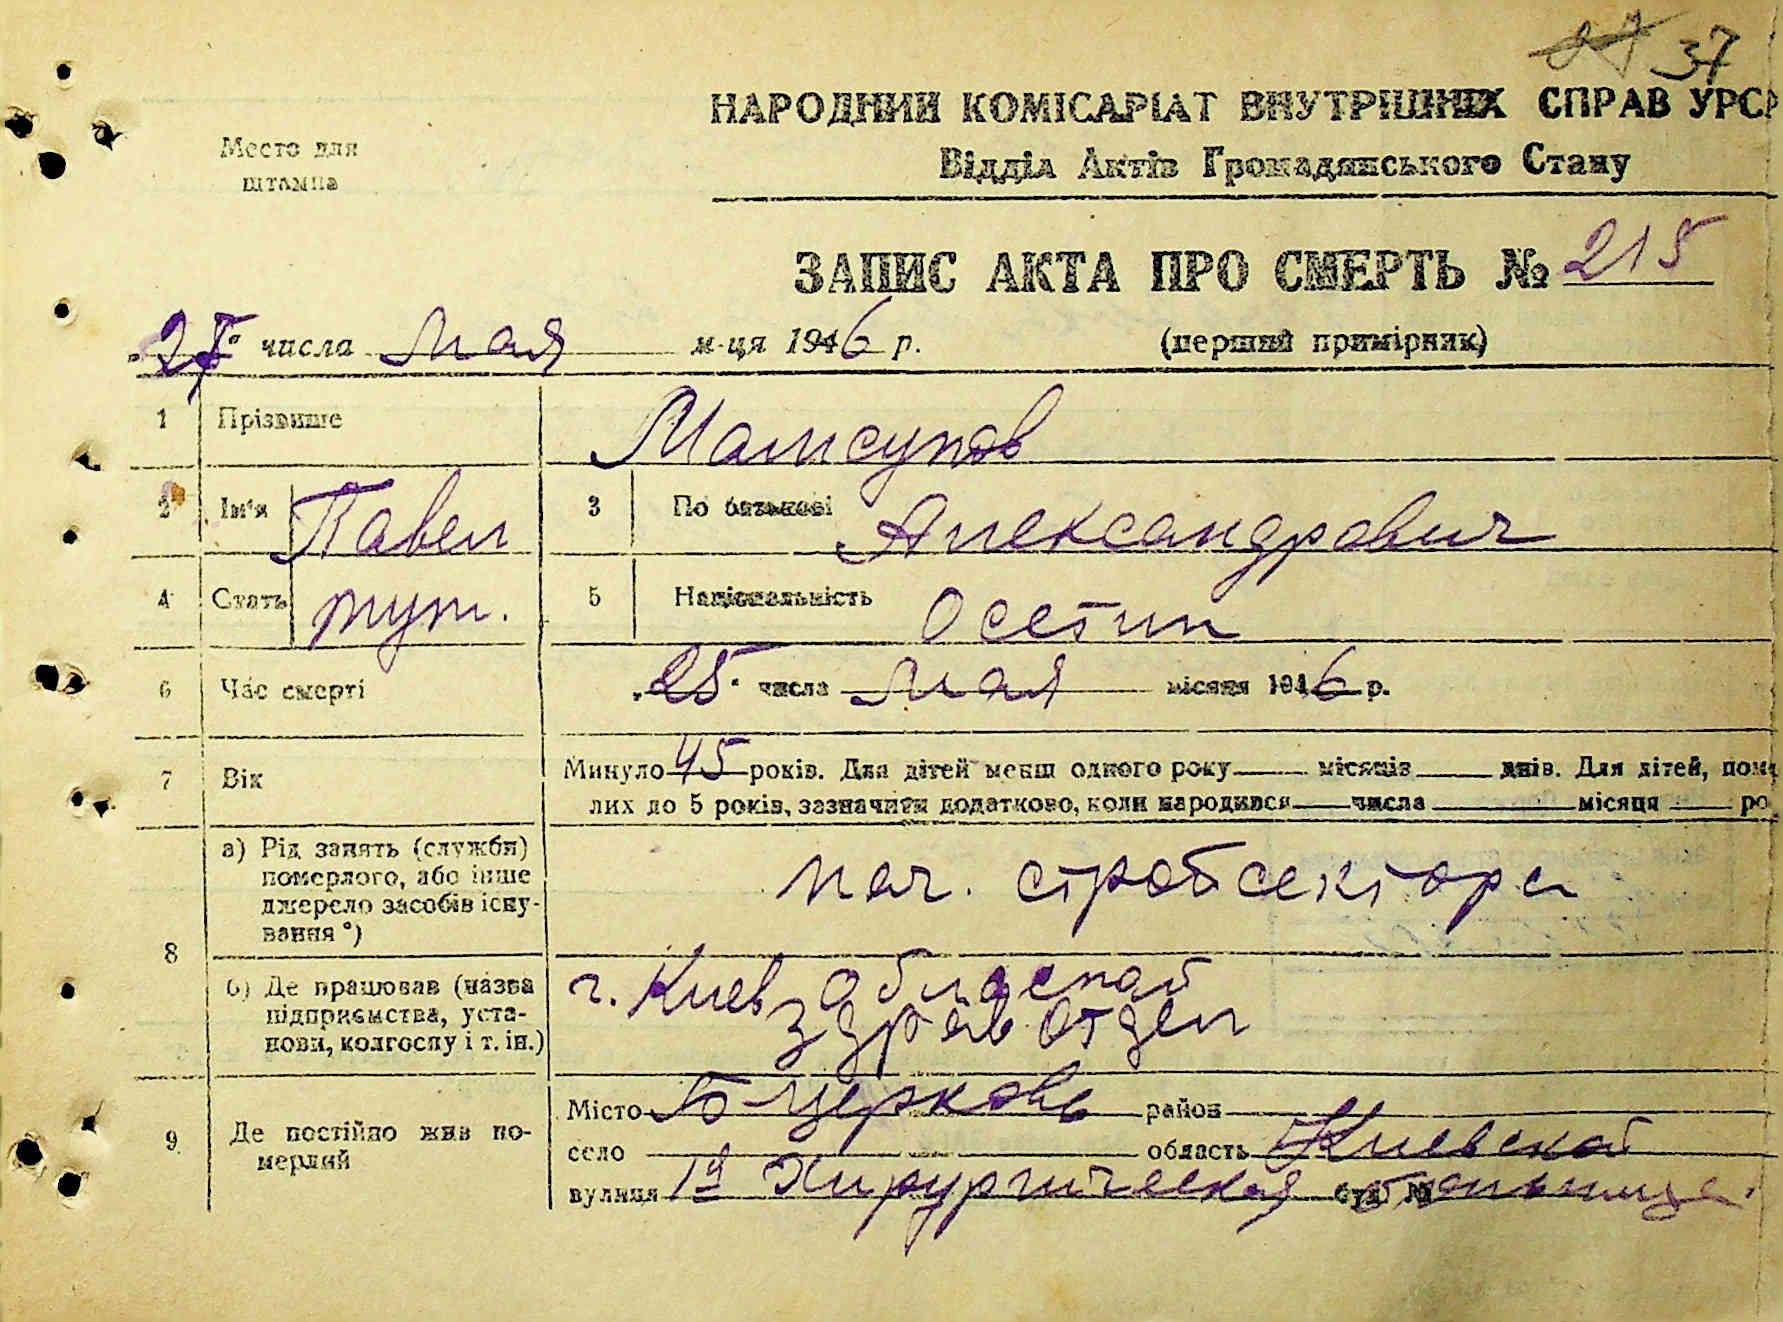 37
НАРОДНИЙ КОМІСАРІАТ ВНУТРІШНІХ СПРАВ УРСР
Відділ Актів Громадянського Стану
Место для
штампа
ЗАПИС АКТА ПРО СМЕРТЬ № 215
„27“ числа мая м-ця 1946 р. (перший примірник)
1 Прізвище Мамсуров
2 Ім'я Павел 3 По батькові Александрович
4 Стать муж. 5 Національність Осетин
6 Час смерті „25“ числа мая місяця 1946 р.
7 Вік Минуло 45 років. Для дітей менш одного року місяців днів. Для дітей, пома
лих до 5 років, зазначити додатково, коли народився числа місяця ро
8 а) Рід занять (служби) померлого, або інше джерело засобів існування *) нач. стройсектора
б) Де працював (назва підприємства, установи, колгоспу і т. ін.) г. Киев Областной
здрав отдел
9 Де постійно жив померлий Місто Б-церковь район
село область Киевской
вулиця 1я Хирургическая больница.